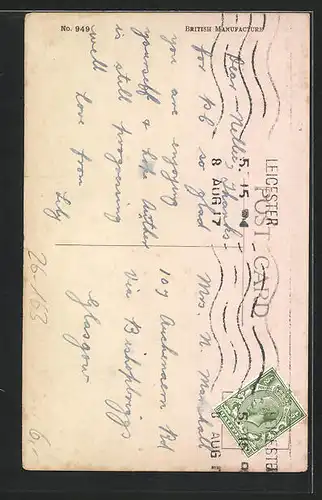 No. 949
BRITISH MANUFACTURE
POST CARD
LEICESTER
5. 15 PM
8 AUG 17
Dear Nellie, Thanks
for P.C. so glad
you are enjoying
yourself & Arthur
is still progressing
well Love from
Lily
Mrs. N. Marshall
109 Auchenairn Rd
Via Bishopbriggs
Glasgow
LEICESTER
5. 15
AUG
26-163
6,-